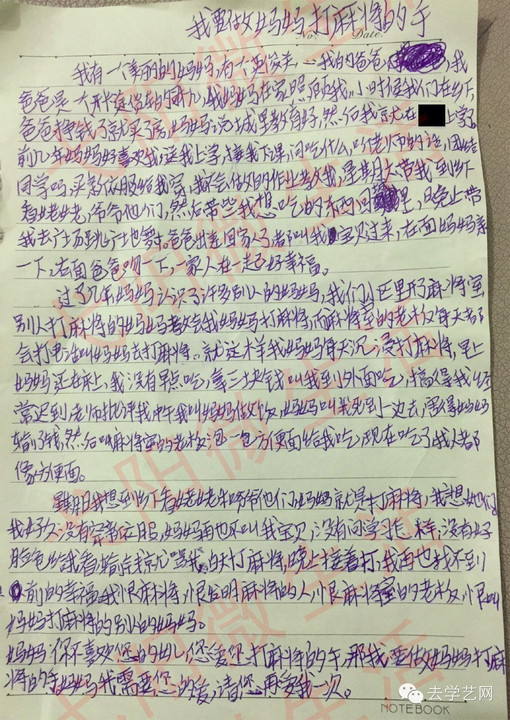 我要做妈妈打麻将的手
Date.
我有一个美丽的妈妈,有一个英俊
我的爸爸,我
爸爸是一个
的司机,我妈妈在家照顾我,小时候我们在乡下,
爸爸挣钱了就买了房,妈妈说城里教育好,然后我就在
上学,
前几年妈妈好喜欢我,送我上学,接我下课,问吃什么,听老师的话,团结
同学吗,买新衣服给我穿,我不会做的作业教我,星期天带我到乡下
看姥姥,爷爷他们,然后带些我想吃的东西回
里,晚上带
我去广场玩,跳广场舞。爸爸出差回家了都叫我宝贝过来,左面妈妈亲
一下,右面爸爸吻一下,一家人在一起好幸福。
过了几年妈妈认识了许多别人的妈妈,我们小区里开了麻将室,
别人打麻将的妈妈教我妈妈打麻将,而麻将室的老板每天都
会打电话叫妈妈去打麻将。就这样我妈妈每天沉浸打麻将,早上
妈妈还在床上,我没有早点吃,拿三块钱叫我到外面吃,搞得我经
常迟到老师批评我,中午我叫妈妈做饭,妈妈叫我死到一边去,害得妈妈
输了钱,然后叫麻将室的老板泡一包方便面给我吃,现在吃了我人都
像方便面。
星期天我想到乡下看姥姥和爷爷他们,妈妈就是打麻将,我想她们,
我好久没有穿新衣服,妈妈再也不叫我宝贝,没有问学习怎么样,没有好
脸色给我看,输点钱就骂我,白天打麻将,晚上接着打,我再也找不到
以前的幸福,我恨麻将,恨发明麻将的人,恨麻将室的老板,恨叫
妈妈打麻将的别人的妈妈。
妈妈你不喜欢您的幼儿,您爱你打麻将的手,那我要做妈妈打麻
将的手,妈妈我需要您的爱,请您再爱我一次。
NOTEBOOK
去学艺网